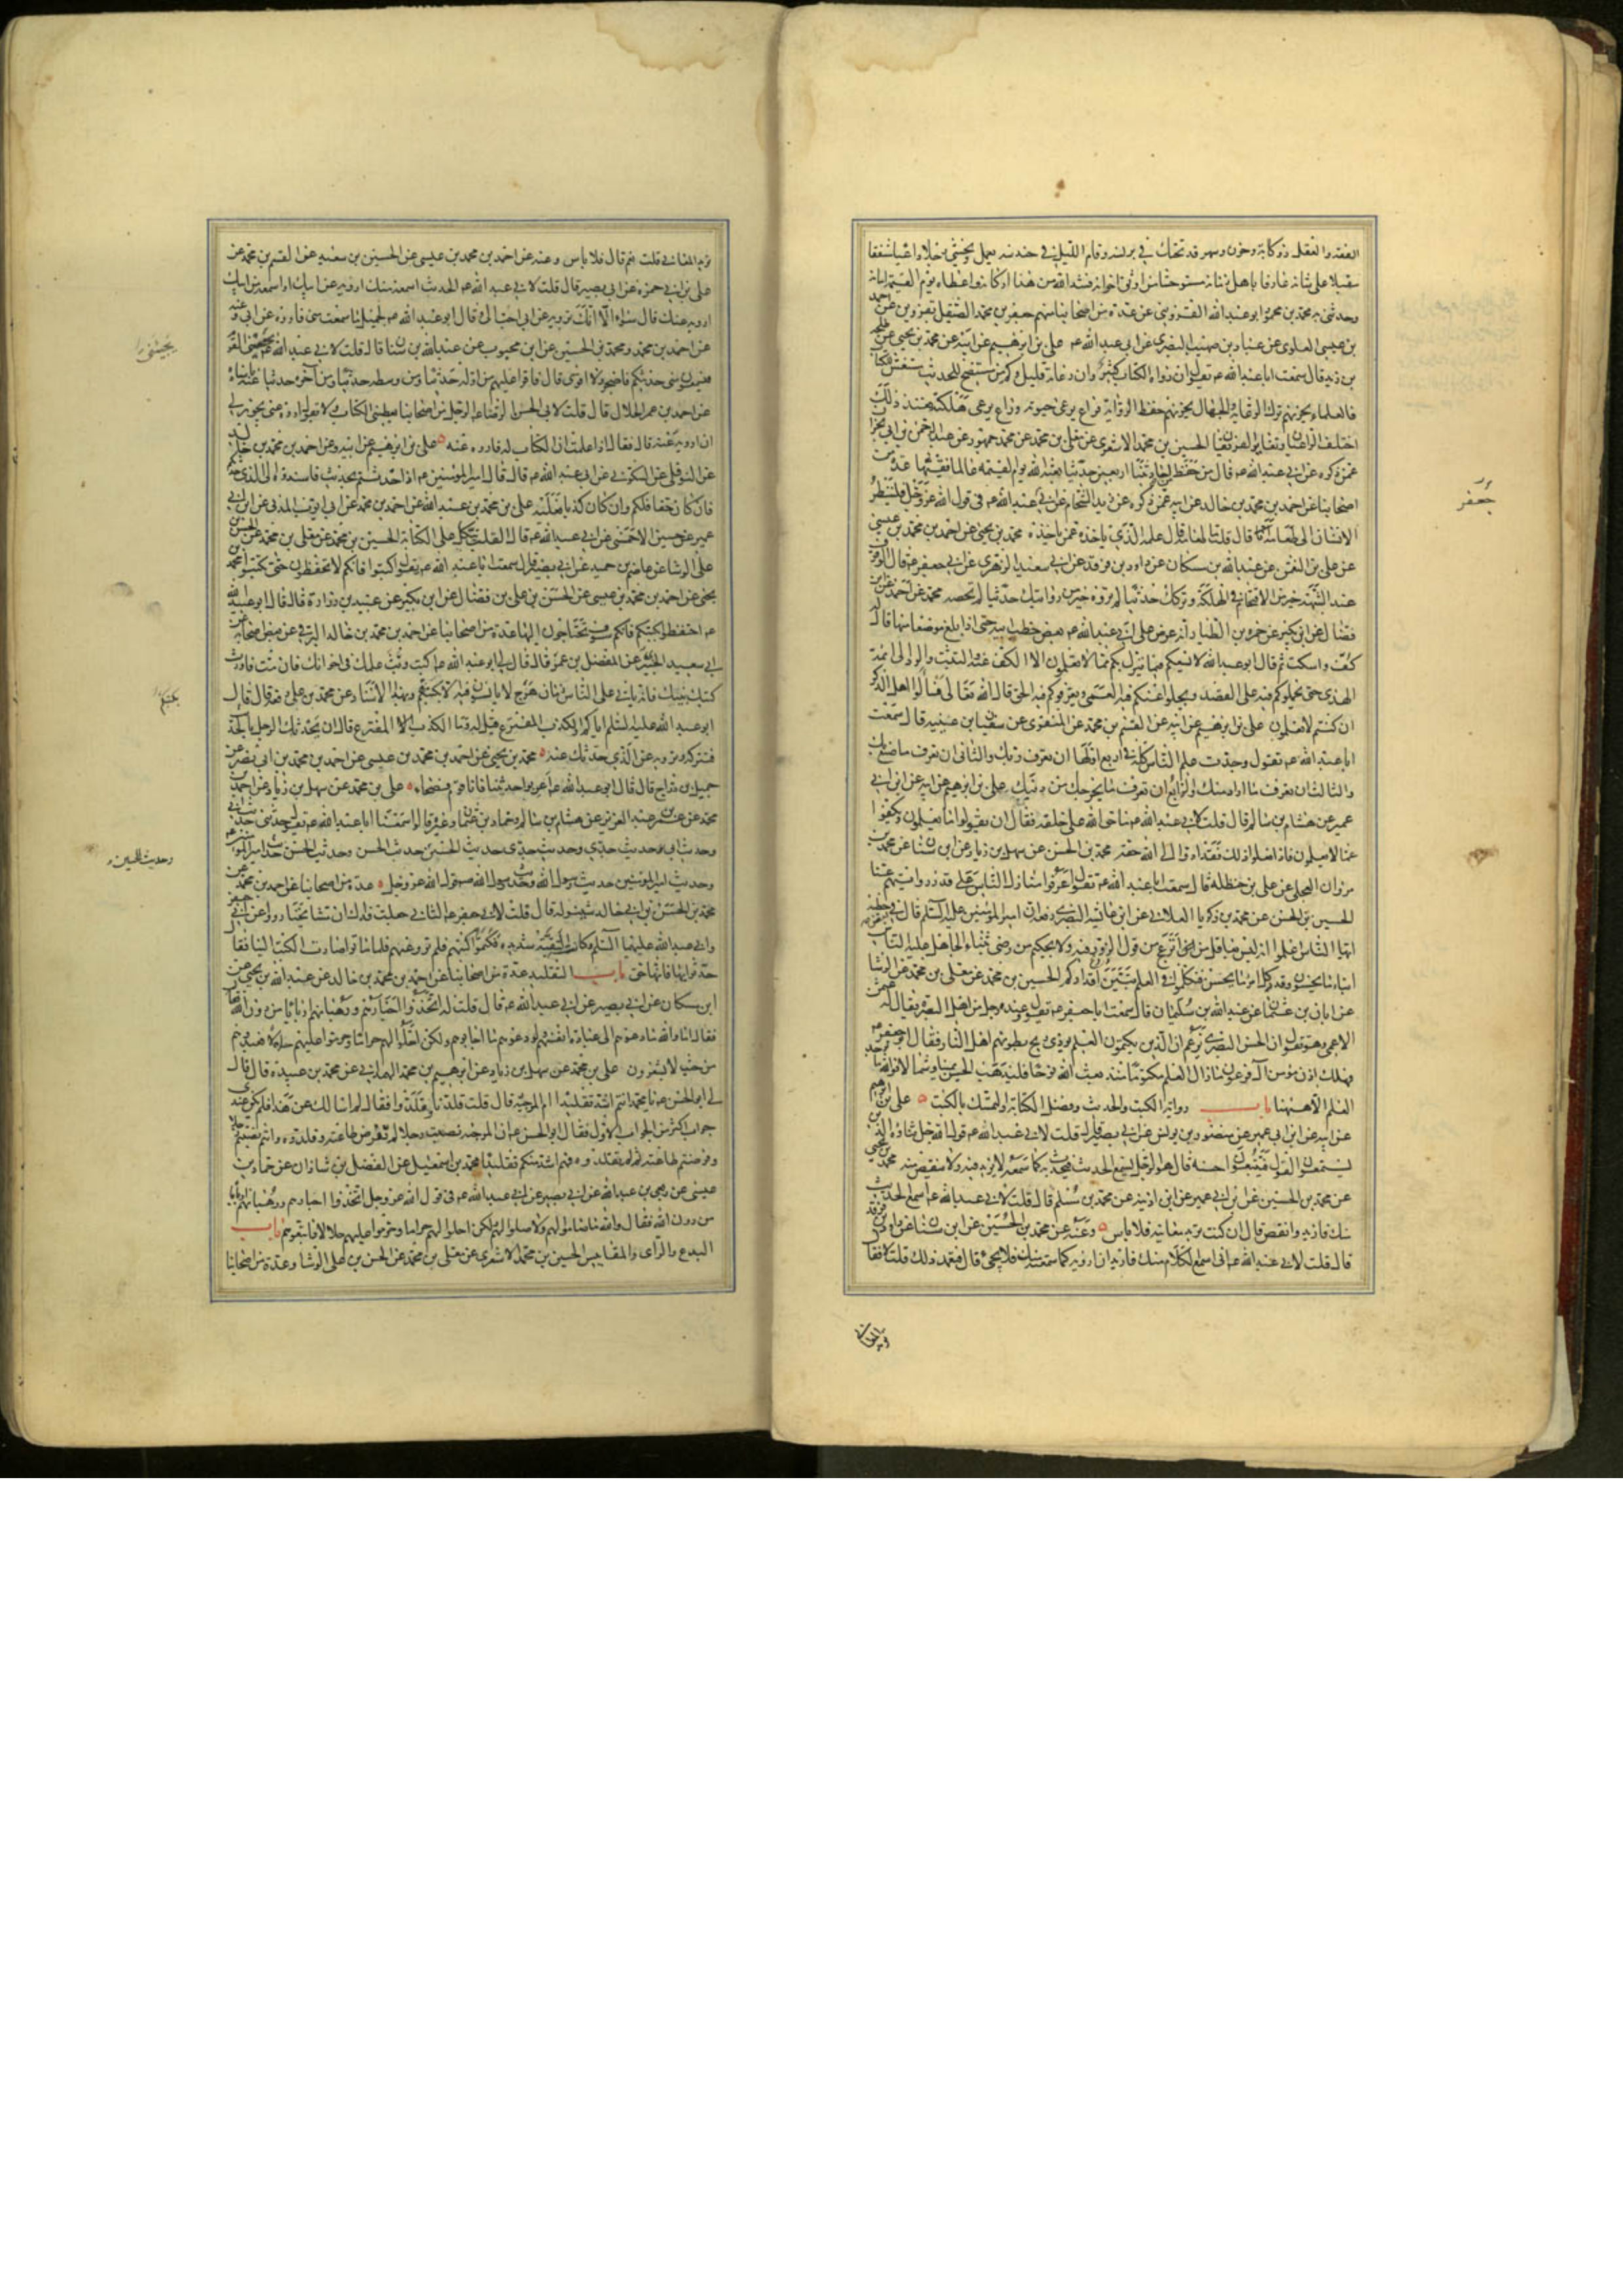 الفقه والعقل ذو كآبة وحزن وسهر قد تحنك في برنسه وقام الليل في حندسه يعمل ويخشى وجلا داعيا مشفقا
مقبلا على شانه عارفا باهل زمانه مستوحشا من اوثق اخوانه فشد الله من هذا اركانه واعطاه يوم القيمة امانه
وحدثني به محمد بن محمود ابو عبد الله القزويني عن عدة من اصحابنا منهم جعفر بن محمد الصيقل بقزوين عن احمد
بن عيسى العلوي عن عباد بن صهيب البصري عن ابي عبد الله ع م علي بن ابرهيم عن ابيه عن محمد بن يحيى عن طلحة
بن زيد قال سمعت ابا عبد الله ع م يقول ان رواة الكتاب كثير وان رعاته قليل وكم من مستنصح للحديث مستغش للكتاب
فالعلماء يحزنهم ترك الرعاية والجهال يحزنهم حفظ الرواية فراع يرعى حيوته وراع يرعى هلكته فعند ذلك
اختلف الراعيان وتغاير الفريقان الحسين بن محمد الاشعري عن معلى بن محمد عن محمد بن جمهور عن عبد الرحمن بن ابي نجران
عمن ذكره عن ابي عبد الله ع م قال من حفظ من احاديثنا اربعين حديثا بعثه الله يوم القيمة عالما فقيها عدة من
اصحابنا عن احمد بن محمد بن خالد عن ابيه عمن ذكره عن زيد الشحام عن ابي عبد الله ع م في قول الله عز وجل فلينظر
الانسان الى طعامه قال قلت ما طعامه قال علمه الذي ياخذه عمن ياخذه محمد بن يحيى عن احمد بن محمد بن عيسى
عن علي بن النعمن عن عبد الله بن مسكان عن داود بن فرقد عن ابي سعيد الزهري عن ابي جعفر ع م قال الوقوف
عند الشبهة خير من الاقتحام في الهلكة وتركك حديثا لم تروه خير من روايتك حديثا لم تحصه محمد عن احمد عن ابن
فضال عن ابن بكير عن حمزة بن الطيار انه عرض على ابي عبد الله ع م بعض خطب ابيه حتى اذا بلغ موضعا منها قال له
كف واسكت ثم قال ابو عبد الله لا يسعكم فيما ينزل بكم مما لا تعلمون الا الكف عنه والتثبت والرد الى ائمة
الهدى حتى يحملوكم فيه على القصد ويجلوا عنكم فيه العمى ويعرفوكم فيه الحق قال الله تعالى فسالوا اهل الذكر
ان كنتم لا تعلمون علي بن ابرهيم عن ابيه عن القسم بن محمد عن المنقري عن سفين بن عيينه قال سمعت
ابا عبد الله ع م يقول وجدت علم الناس كله في اربع اولها ان تعرف ربك والثاني ان تعرف ما صنع بك
والثالث ان تعرف ما اراد منك والرابع ان تعرف ما يخرجك من دينك علي بن ابرهيم عن ابيه عن ابن ابي
عمير عن هشام بن سالم قال قلت لابي عبد الله ع م ما حق الله على خلقه فقال ان يقولوا ما يعلمون ويكفوا
عما لا يعلمون فاذا فعلوا ذلك فقد ادوا الى الله حقه محمد بن الحسن عن سهل بن زياد عن ابن سنان عن محمد بن
مروان العجلي عن علي بن حنظله قال سمعت ابا عبد الله ع م يقول اعرفوا منازل الناس على قدر روايتهم عنا
الحسين بن الحسن عن محمد بن زكريا الغلابي عن ابن عائشه البصري رفعه ان امير المؤمنين عليه السلم قال في بعض خطبه
ايها الناس اعلموا انه ليس بعاقل من انزعج من قول الزور فيه ولا بحكيم من رضي بثناء الجاهل عليه الناس
ابناء ما يحسنون وقدر كل امرئ ما يحسن فتكلموا في العلم تبين اقداركم الحسين بن محمد عن معلى بن محمد عن الوشا
عن ابان بن عثمان عن عبد الله بن سليمان قال سمعت ابا جعفر ع م يقول وعنده رجل من اهل البصرة يقال له عثمن
الاعمى وهو يقول ان الحسن البصري يزعم ان الذين يكتمون العلم يوذي ريح بطونهم اهل النار فقال ابو جعفر ع م
فهلك اذن مؤمن آل فرعون ما زال العلم مكتوما منذ بعث الله نوحا فليذهب الحسن يمينا وشمالا فوالله ما يوجد
العلم الا هيهنا باب رواية الكتب والحديث وفضل الكتابة والتمسك بالكتب علي بن ابرهيم
عن ابيه عن ابن ابي عمير عن منصور بن يونس عن ابي بصير قال قلت لابي عبد الله ع م قول الله جل ثناؤه الذين
يستمعون القول فيتبعون احسنه قال هو الرجل يسمع الحديث فيحدث به كما سمعه لا يزيد فيه ولا ينقص منه محمد بن يحيى
عن محمد بن الحسين عن ابن ابي عمير عن ابن اذينه عن محمد بن مسلم قال قلت لابي عبد الله ع م اسمع الحديث
منك فازيد وانقص قال ان كنت تريد معانيه فلا باس وعنه عن محمد بن الحسين عن ابن سنان عن داود بن فرقد
قال قلت لابي عبد الله ع م اني اسمع الكلام منك فاريد ان ارويه كما سمعته منك فلا يجيء قال فتعمد ذلك قلت لا فقال
جعفر
تريد المعاني قلت نعم قال فلا باس وعنه عن احمد بن محمد بن عيسى عن الحسين بن سعيد عن القسم بن محمد عن
علي بن ابي حمزه عن ابي بصير قال قلت لابي عبد الله ع م الحديث اسمعه منك ارويه عن ابيك او اسمعه من ابيك
ارويه عنك قال سواء الا انك ترويه عن ابي احب الي وقال ابو عبد الله ع م لجميل ما سمعت مني فاروه عن ابي وعنه
عن احمد بن محمد ومحمد بن الحسين عن ابن محبوب عن عبد الله بن سنان قال قلت لابي عبد الله ع م يجيئني القوم
فيستمعون مني حديثكم فاضجر ولا اقوى قال فاقرا عليهم من اوله حديثا ومن وسطه حديثا ومن آخره حديثا عنه باسناده
عن احمد بن عمر الحلال قال قلت لابي الحسن الرضا ع م الرجل من اصحابنا يعطيني الكتاب ولا يقول اروه عني يجوز لي
ان ارويه عنه قال فقال اذا علمت ان الكتاب له فاروه عنه علي بن ابرهيم عن ابيه وعن احمد بن محمد بن خالد
عن النوفلي عن السكوني عن ابي عبد الله ع م قال قال امير المؤمنين ع م اذا حدثتم بحديث فاسندوه الى الذي حدثكم
فان كان حقا فلكم وان كان كذبا فعليه علي بن محمد بن عبد الله عن احمد بن محمد عن ابي ايوب المدني عن ابن ابي
عمير عن حسين الاحمسي عن ابي عبد الله ع م قال القلب يتكل على الكتابة الحسين بن محمد عن معلى بن محمد عن الحسن بن
علي الوشا عن عاصم بن حميد عن ابي بصير قال سمعت ابا عبد الله ع م يقول اكتبوا فانكم لا تحفظون حتى تكتبوا محمد بن
يحيى عن احمد بن محمد بن عيسى عن الحسن بن علي بن فضال عن ابن بكير عن عبيد بن زرارة قال قال ابو عبد الله
ع م احتفظوا بكتبكم فانكم سوف تحتاجون اليها عدة من اصحابنا عن احمد بن محمد بن خالد البرقي عن بعض اصحابه عن
ابي سعيد الخيبري عن المفضل بن عمر قال قال لي ابو عبد الله ع م اكتب وبث علمك في اخوانك فان مت فاورث
كتبك بنيك فانه ياتي على الناس زمان هرج لا يانسون فيه الا بكتبهم وبهذا الاسناد عن محمد بن علي رفعه قال قال
ابو عبد الله عليه السلم اياكم والكذب المفترع قيل له وما الكذب المفترع قال ان يحدثك الرجل بالحديث
فتتركه وترويه عن الذي حدثك عنه محمد بن يحيى عن احمد بن محمد بن عيسى عن احمد بن محمد بن ابي نصر عن
جميل بن دراج قال قال ابو عبد الله ع م اعربوا حديثنا فانا قوم فصحاء علي بن محمد عن سهل بن زياد عن احمد بن
محمد عن عمر بن عبد العزيز عن هشام بن سالم وحماد بن عثمان وغيره قالوا سمعنا ابا عبد الله ع م يقول حديثي حديث ابي
وحديث ابي حديث جدي وحديث جدي حديث الحسين حديث الحسن وحديث الحسن حديث امير المؤمنين ع م
وحديث امير المؤمنين حديث رسول الله وحديث رسول الله قول الله عز وجل عدة من اصحابنا عن احمد بن محمد عن
محمد بن الحسن بن ابي خالد شينوله قال قلت لابي جعفر الثاني جعلت فداك ان مشايخنا رووا عن ابي جعفر
وابي عبد الله عليهما السلم وكانت التقية شديده فكتموا كتبهم فلم ترو عنهم فلما ماتوا صارت الكتب الينا فقال
حدثوا بها فانها حق باب التقليد عدة من اصحابنا عن احمد بن محمد بن خالد عن عبد الله بن يحيى عن
ابن مسكان عن ابي بصير عن ابي عبد الله ع م قال قلت له اتخذوا احبارهم ورهبانهم اربابا من دون الله
فقال اما والله ما دعوهم الى عبادة انفسهم ولو دعوهم ما اجابوهم ولكن احلوا لهم حراما وحرموا عليهم حلالا فعبدوهم
من حيث لا يشعرون علي بن محمد عن سهل بن زياد عن ابرهيم بن محمد الهمداني عن محمد بن عبيدة قال قال
لي ابو الحسن ع م يا محمد انتم اشد تقليدا ام المرجئة قال قلت قلدنا وقلدوا فقال لم اسالك عن هذا فلم يكن عندي
جواب اكثر من الجواب الاول فقال ابو الحسن ع م ان المرجئه نصبت رجلا لم تفرض طاعته وقلدوه وانتم نصبتم رجلا
وفرضتم طاعته ثم لم تقلدوه فهم اشد منكم تقليدا محمد بن اسمعيل عن الفضل بن شاذان عن حماد بن
عيسى عن ربعي بن عبد الله عن ابي بصير عن ابي عبد الله ع م في قول الله عز وجل اتخذوا احبارهم ورهبانهم اربابا
من دون الله فقال والله ما صاموا لهم ولا صلوا لهم ولكن احلوا لهم حراما وحرموا عليهم حلالا فاتبعوهم باب
البدع والراي والمقاييس الحسين بن محمد الاشعري عن معلى بن محمد عن الحسن بن علي الوشا وعدة من اصحابنا
يجيئني
بكتبكم
وحديث الحسين